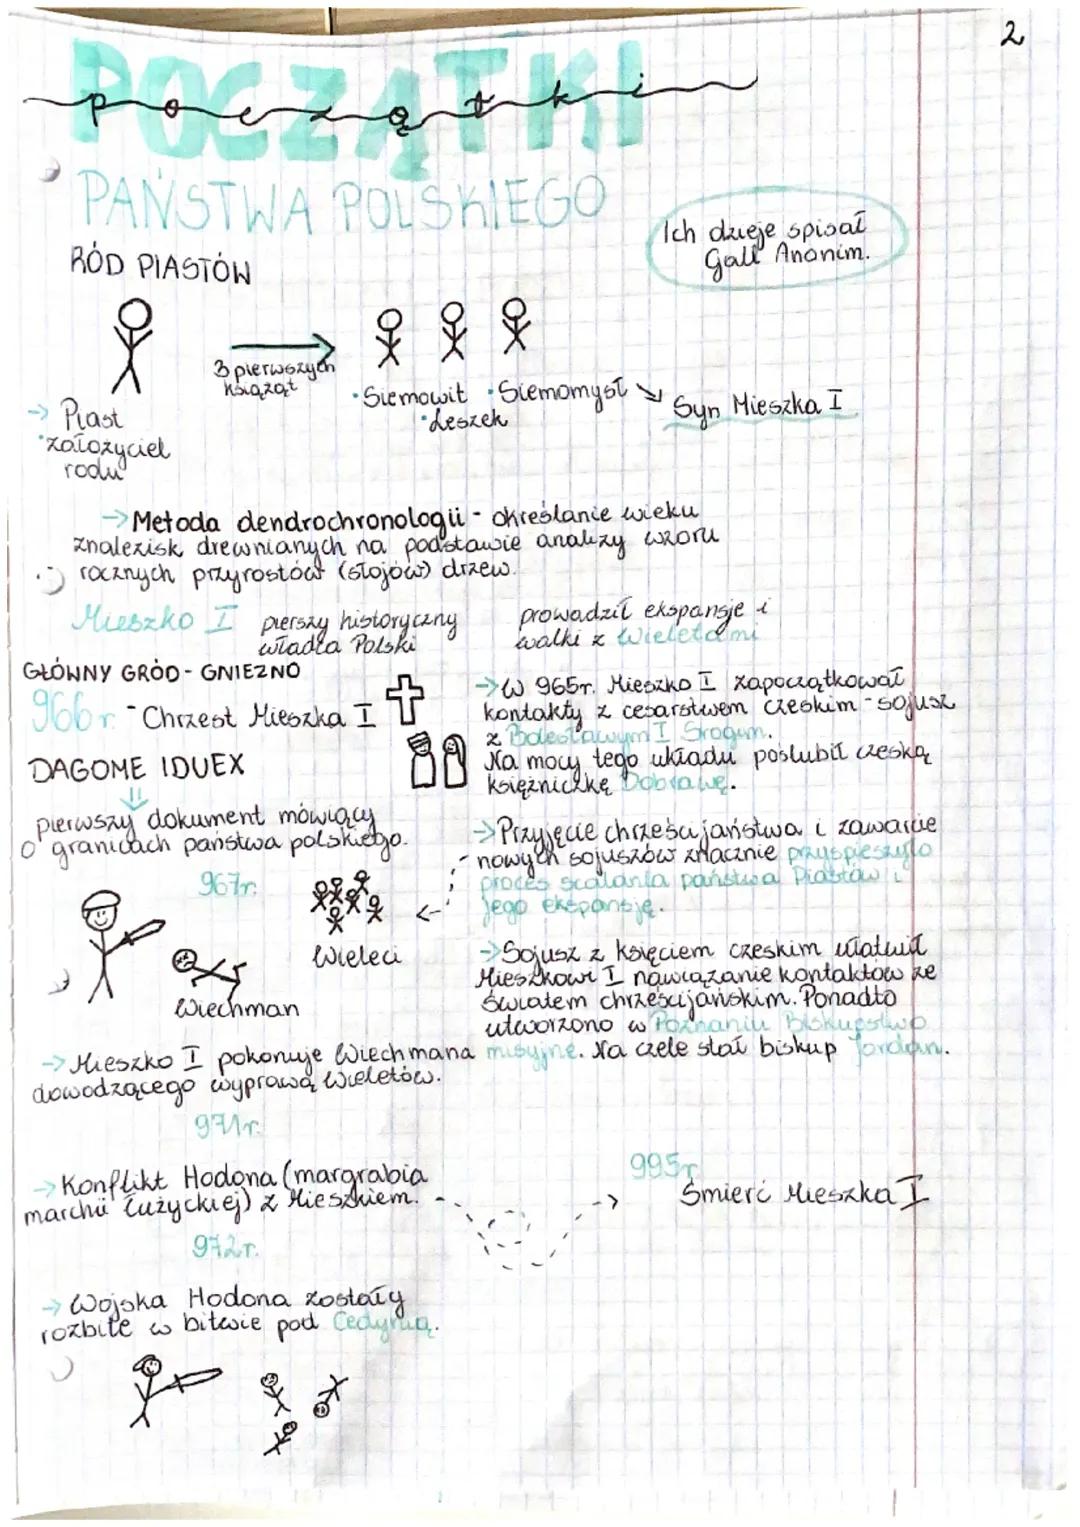 2
POCZĄTKI
początki
PAŃSTWA POLSKIEGO
Ich dzieje spisał
Gall Anonim.
RÓD PIASTÓW
3 pierwszych
książąt
→ Piast
•założyciel
rodu
•Siemowit •Siemomysł ↘
•Leszek
Syn Mieszka I
→Metoda dendrochronologii - określanie wieku
znalezisk drewnianych na podstawie analizy wzoru
rocznych przyrostów (słojów) drzew.
Mieszko I pierszy historyczny
władca Polski
prowadził ekspansje i
walki z Wieletami
GŁÓWNY GRÓD - GNIEZNO
966 r. - Chrzest Mieszka I
→W 965r. Mieszko I zapoczątkował
kontakty z cesarstwem czeskim - sojusz
z Bolesławym I Srogim.
Na mocy tego układu poślubił czeską
księżniczkę Dobrawę.
DAGOME IDUEX
pierwszy dokument mówiący
o granicach państwa polskiego.
→Przyjęcie chrześcijaństwa i zawarcie
nowych sojuszów znacznie przyspieszyło
proces scalania państwa Piastów i
jego ekspansję.
967r.
Wieleci
Wiechman
→Sojusz z księciem czeskim ułatwił
Mieszkowi I nawiązanie kontaktów ze
światem chrześcijańskim. Ponadto
utworzono w Poznaniu Biskupstwo
misyjne. Na czele stał biskup Jordan.
→Mieszko I pokonuje Wiechmana
dowodzącego wyprawą Wieletów.
971r.
→Konflikt Hodona (margrabia
marchii Łużyckiej) z Mieszkiem.
995r.
Śmierć Mieszka I
972r.
→Wojska Hodona zostały
rozbite w bitwie pod Cedynią.